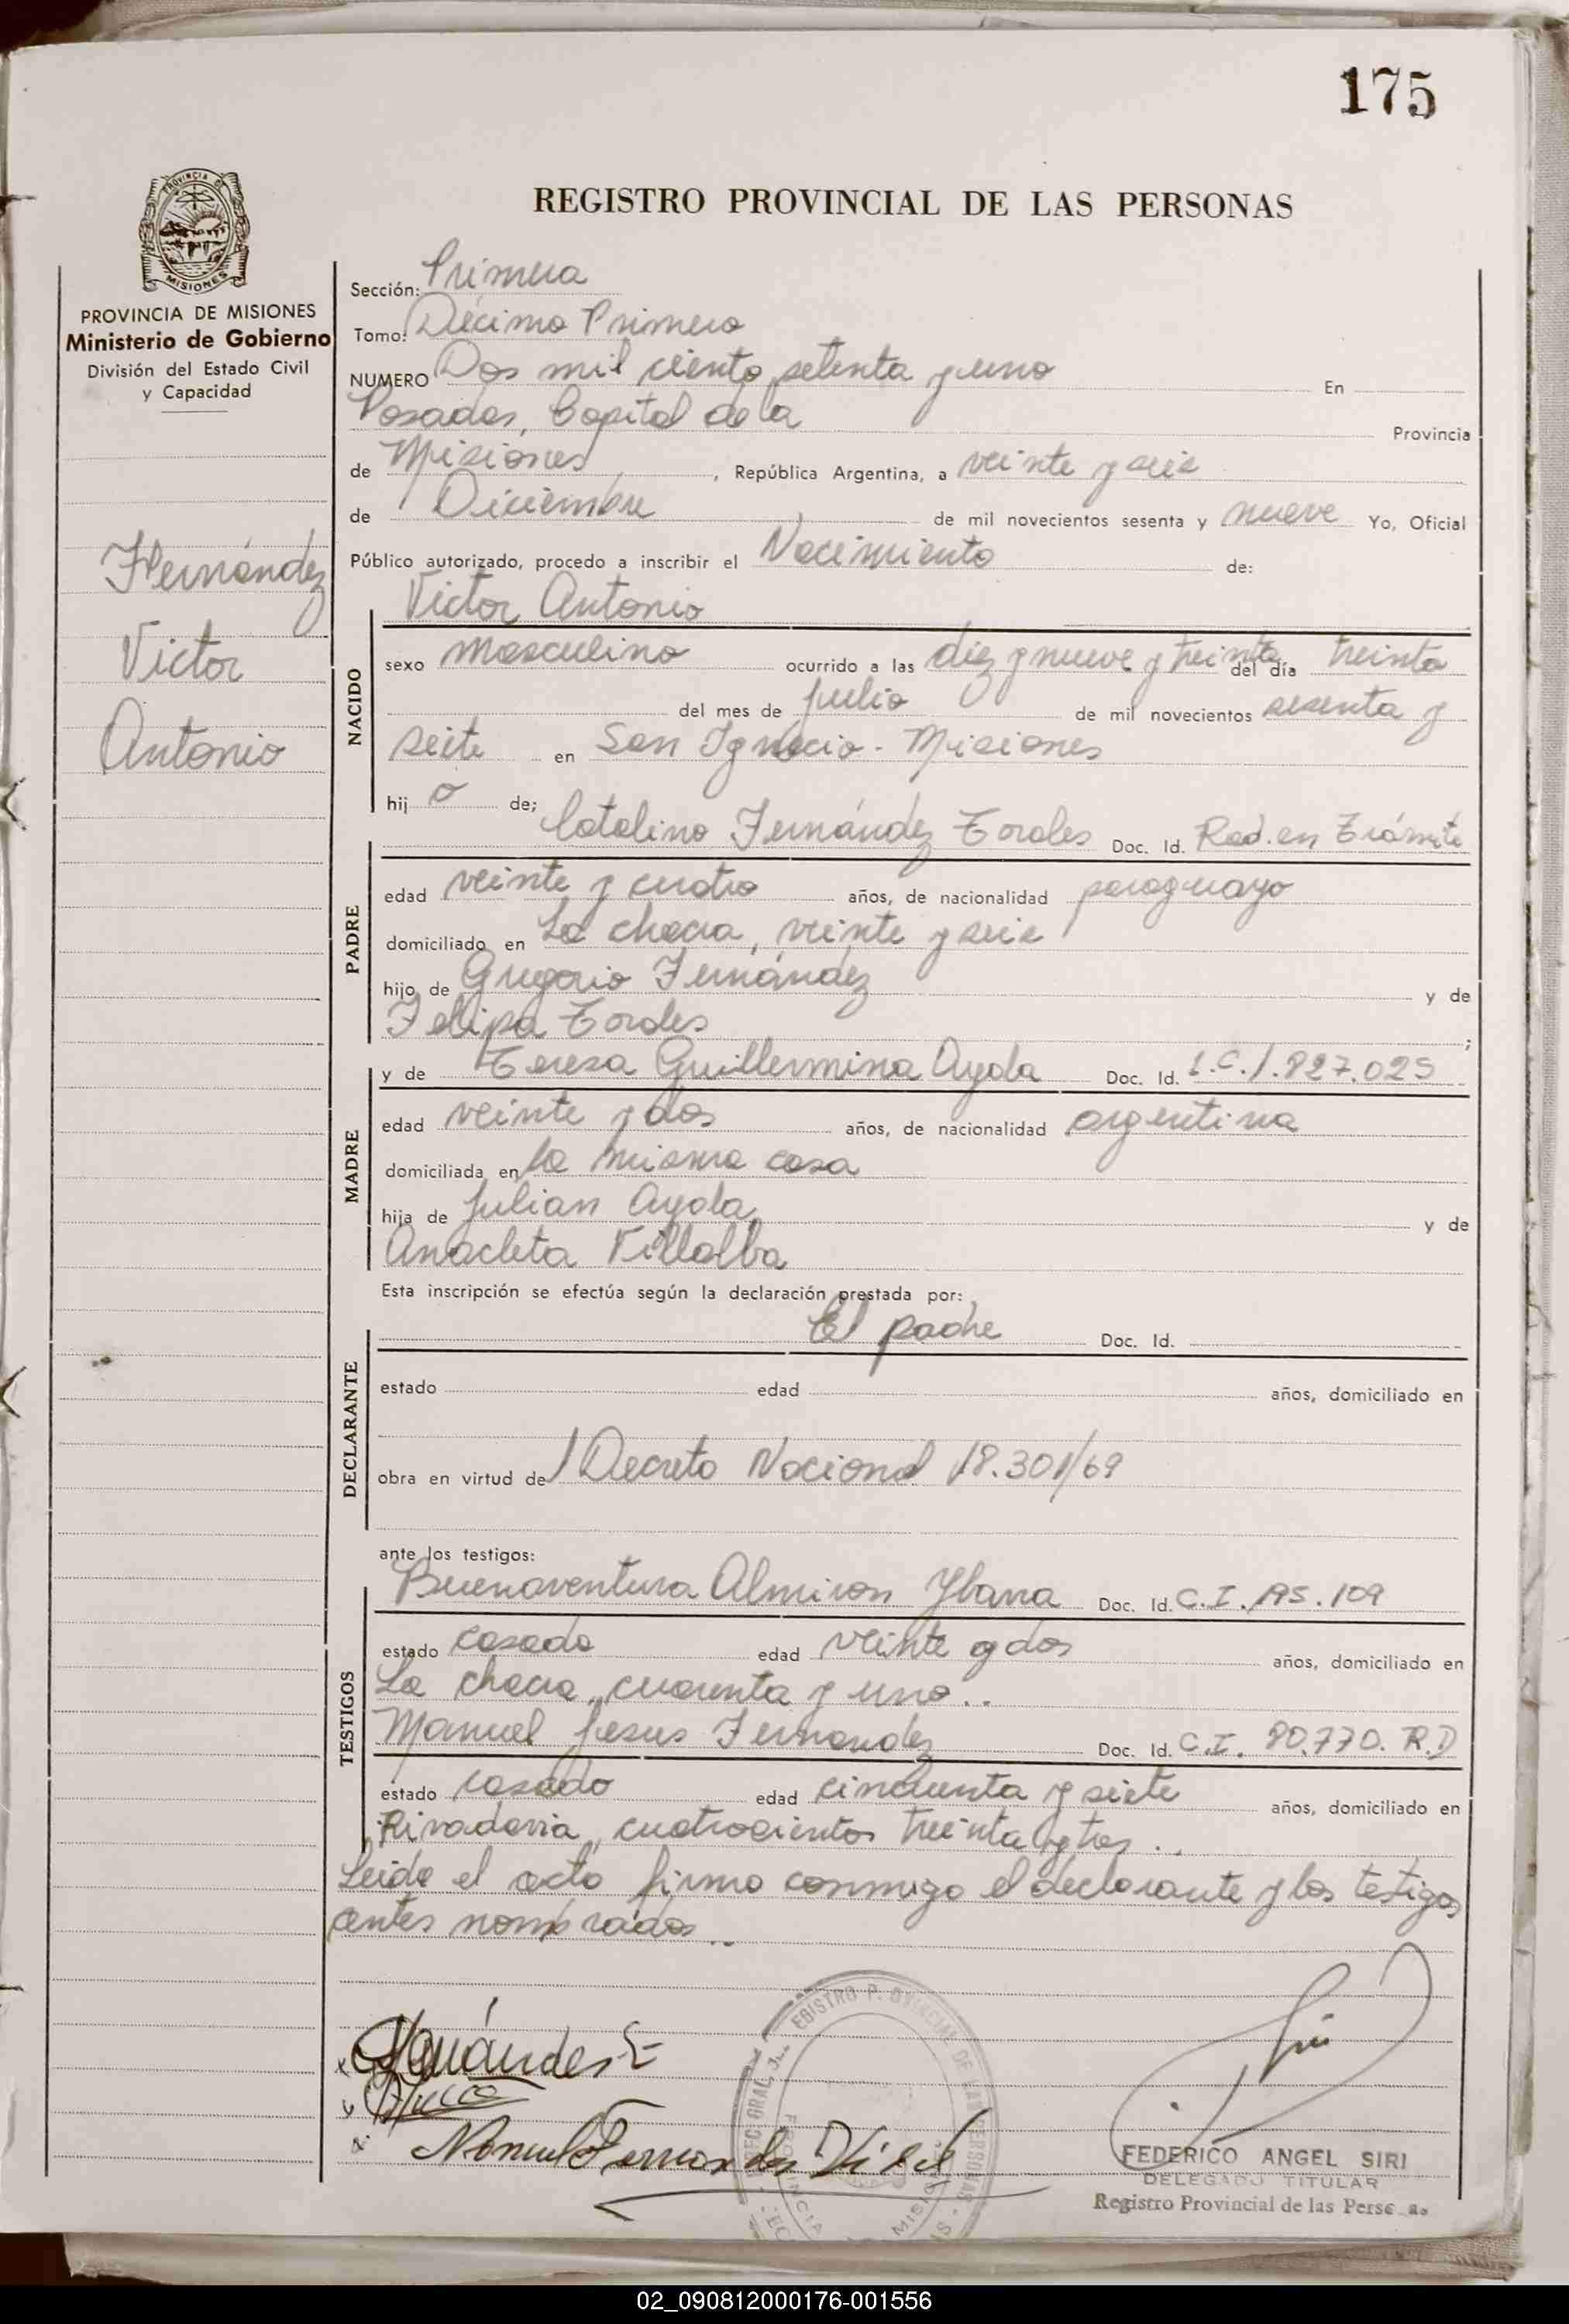 175
REGISTRO PROVINCIAL DE LAS PERSONAS
PROVINCIA DE
MISIONES
PROVINCIA DE MISIONES
Ministerio de Gobierno
División del Estado Civil
y Capacidad
Fernández
Victor
Antonio
Sección: Primera
Tomo: Décimo Primero
NUMERO Dos mil ciento setenta y uno En
Posadas, Capital de la Provincia
de Misiones, República Argentina, a veinte y seis
de Diciembre de mil novecientos sesenta y nueve Yo, Oficial
Público autorizado, procedo a inscribir el Nacimiento de:
Victor Antonio
NACIDO
sexo masculino ocurrido a las diez y nueve y treinta del día treinta
del mes de julio de mil novecientos sesenta y
seite en San Ignacio - Misiones
hij o de; Catalino Fernández Torales Doc. Id. Rad. en Trámite
PADRE
edad veinte y cuatro años, de nacionalidad paraguayo
domiciliado en La chacra, veinte y seis
hijo de Gregorio Fernández y de
Felipa Torales ;
y de Teresa Guillermina Ayala Doc. Id. L.C. 1.827.025
MADRE
edad veinte y dos años, de nacionalidad argentina
domiciliada en la misma casa
hija de Julian Ayala y de
Anacleta Villalba
Esta inscripción se efectúa según la declaración prestada por:
El padre Doc. Id.
DECLARANTE
estado edad años, domiciliado en
obra en virtud de Decreto Nacional 18.301/69
ante los testigos:
Buenaventura Almiron Ybarra Doc. Id. C.I. 195.109
TESTIGOS
estado casado edad veinte y dos años, domiciliado en
La chacra, cuarenta y uno..
Manuel Jesus Fernandez Doc. Id. C.I. 80.770. R.D
estado casado edad cincuenta y siete años, domiciliado en
Rivadavia, cuatrocientos treinta y tres..
Leida el acta firma conmigo el declarante y los testigos
antes nombrados..
Manuel Fernandez
FEDERICO ANGEL SIRI
DELEGADO TITULAR
Registro Provincial de las Perso as
02_090812000176-001556